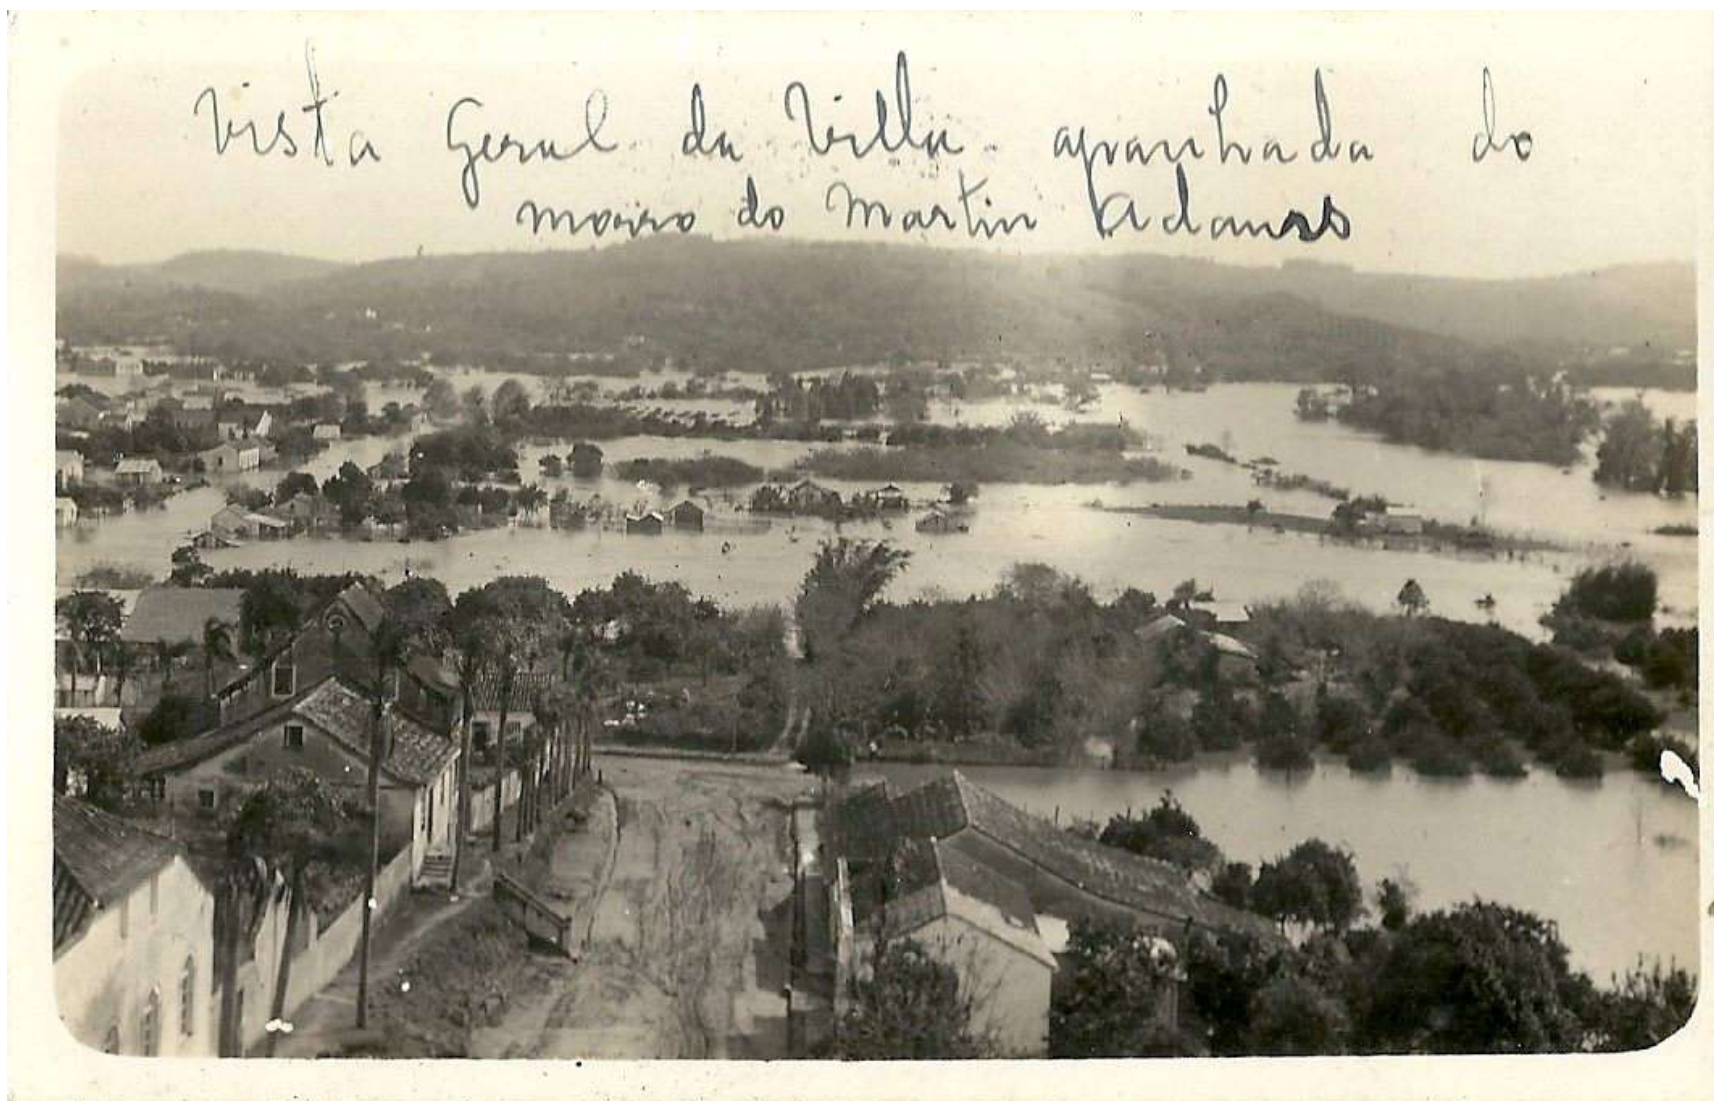 Vista Geral da Villa apanhada do
morro do Martin Adams